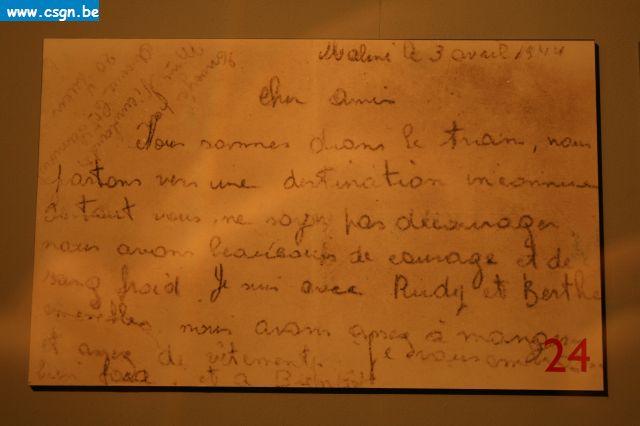 www.csgn.be
Malines le 3 avril 1944
cher amis
Nous sommes dans le train, nous
partons vers une destination inconnue
surtout vous ne soyez pas décourager
nous avons beaucoups de courage et de
sang froid Je suis avec Rudy et Berthe
ensembles nous avons assez à manger
et assez de vêtements je vous
bien fort, et à
24